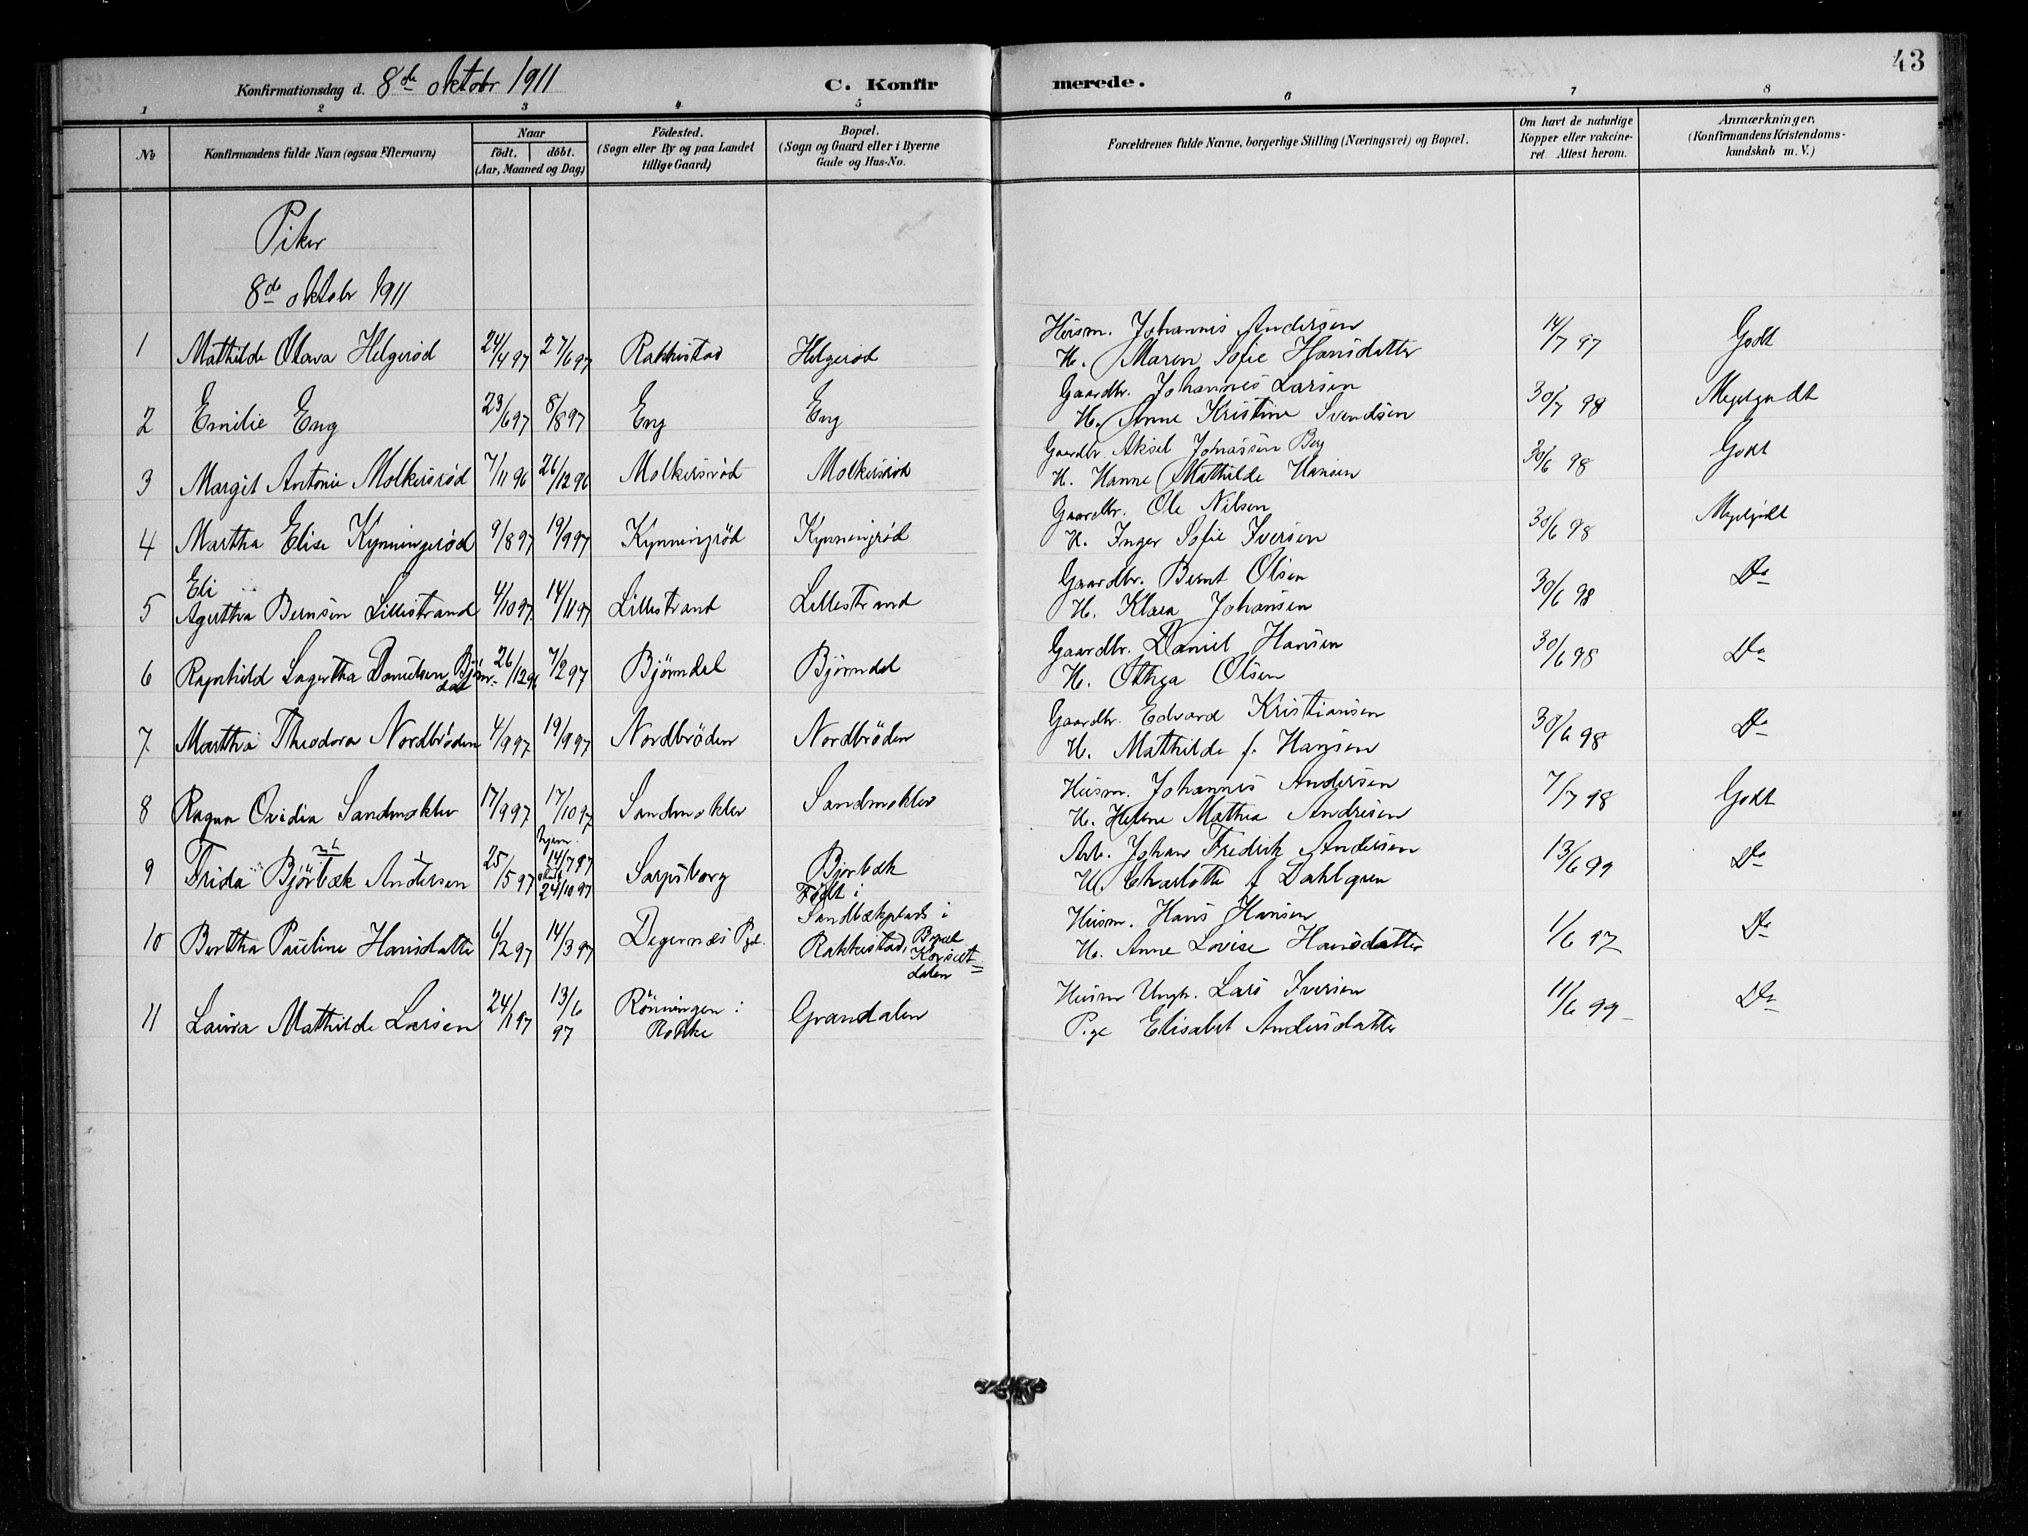 43
Konfirmationsdag d. 8de oktobr 1911 C. Konfirmerede.
1 2 3 4 5 6 7 8
No Konfirmandens fulde Navn (ogsaa Efternavn) Naar födt. döbt. (Aar, Maaned og Dag) Födested. (Sogn eller By og paa Landet tillige Gaard) Bopæl. (Sogn og Gaard eller i Byerne Gade og Hus-No. Forældrenes fulde Navne, borgerlige Stilling (Næringsvei) og Bopæl. Om havt de naturlige Kopper eller vakcineret Attest herom. Anmærkninger. (Konfirmandens Kristendomskundskab m. V.)
Piker
8de oktobr 1911
1 Mathilde Olava Helgerød 24/4 97 27/6 97 Rakkestad Helgerød Husm. Johannes Andersen 14/7 97 Godt
H. Maren Sofie Hansdatter
2 Emilie Eng 23/6 97 8/8 97 Eng Eng Gaardbr. Johannes Larsen 30/7 98 Megetgodt
H. Anne Kristine Svendsen
3 Margit Antonie Molkersrød 7/11 96 26/12 96 Molkersrød Molkersrød Gaardbr Aksel Johassen Berg 30/6 98 Godt
H. Hanne Mathilde Hansen
4 Martha Elise Kynningsrød 9/8 97 19/9 97 Kynningsrød Kynningsrød Gaardbr. Ole Nilsen 30/6 98 Megetgodt
H. Inger Sofie Iversen
Eli
5 Agertha Bernsen Lillestrand 4/10 97 14/11 97 Lillestrand Lillestrand Gaardbr. Bernt Olsen 30/6 98 Do
H. Klara Johansen
6 Ragnhild Lagertha Danielsen Björndal 26/12 96 7/2 97 Bjørndal Bjørndal Gaardbr. Daniel Hansen 30/6 98 Do
H. Othga Olsen
7 Martha Theodora Nordbrøden 4/9 97 19/9 97 Nordbrøden Nordbrøden Gaardbr. Edvard Kristiansen 30/6 98 Do
H. Mathilde f. Hansen
8 Ragna Ovidia Sandmoklev 17/9 97 17/10 97 Sandmoklev Sandmoklev Husm. Johannes Andersen 7/7 98 Godt
H. Helene Mathea Andresen
9 Frida Bjørbæk Andersen 25/5 97 hjem. 14/7 97 24/10 97 Sarpsborg Bjørbæk Arb. Johan Fredrik Andersen 13/6 99 Do
H. Charlotte f Dahlgren
10 Bertha Pauline Hansdatter 6/2 97 14/3 97 Degernæs Pgd. Født i Sandbækplads i Rakkestad, Bopæl Korsetdalen Husm. Hans Hansen 1/6 97 Do
H. Anne Lovise Hansdatter
11 Laura Mathilde Larsen 24/1 97 13/6 97 Rönningen i Rokke Grandalen Husm Ungk. Lars Iversen 11/6 99 Do
Pige Elisabet Andersdatter